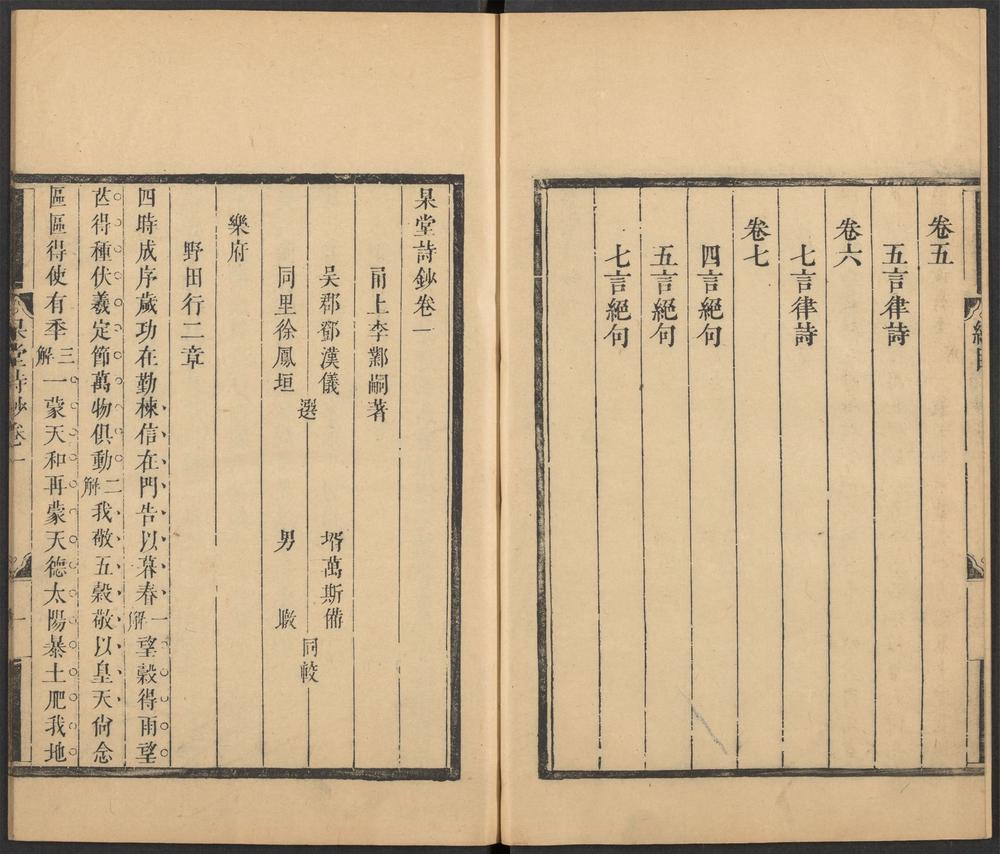 卷五
五言律詩
卷六
七言律詩
卷七
四言絕句
五言絕句
七言絕句
杲堂詩鈔卷一
甬上李鄴嗣著
吳郡鄧漢儀
同里徐鳳垣
選
壻萬斯備
男 暾
同較
樂府
野田行二章
四時成序歲功在勤楝信在門告以暮春一解望穀得雨望
芑得種伏羲定節萬物俱動二解我敬五穀敬以皇天尙念
區區得使有季三解一蒙天和再蒙天德太陽暴土肥我地
杲堂詩鈔卷一
一